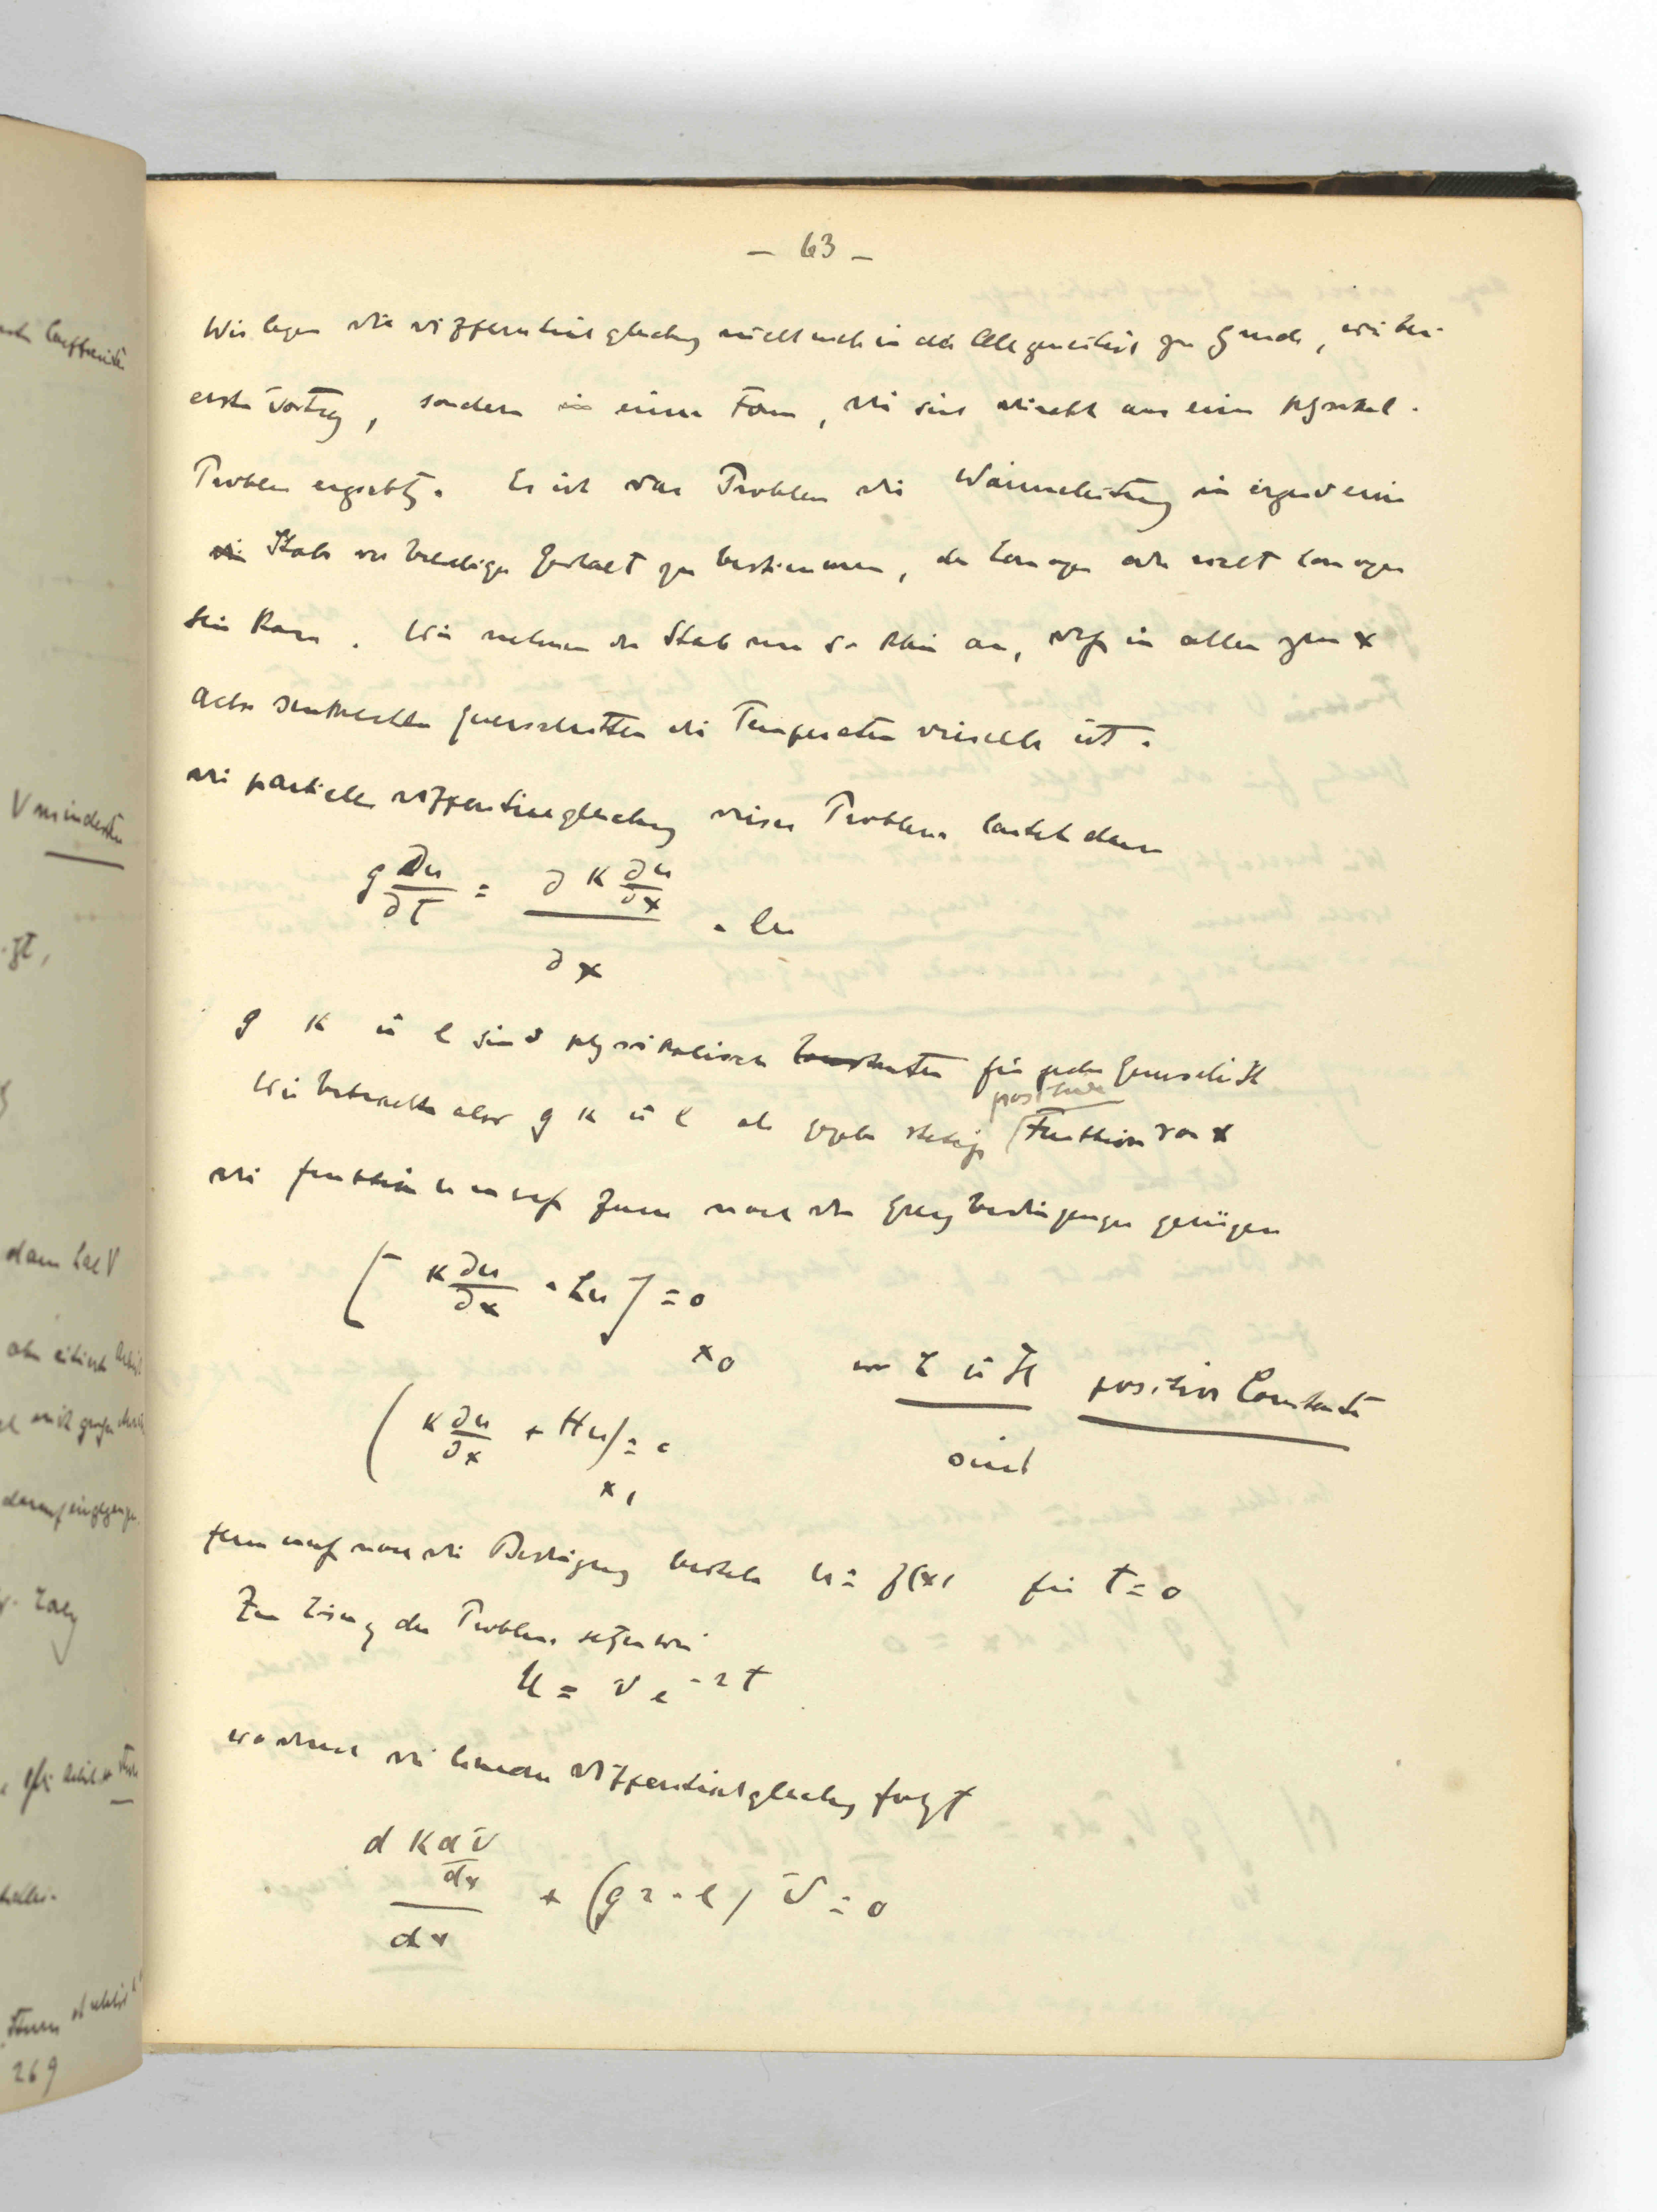 — 63 —
Wir legen die Differentialgleichung nicht mehr in der Allgemeinheit zu Grunde, wie bei
ersten Vortrag, sondern in einer Form, die sich direkt aus einem physikal.
Problem ergiebt. Es ist das Problem die Wärmeleitung in irgend einem
Stabe von beliebiger Gestalt zu bestimmen, der homogen oder nicht homogen
sein kann. Wir nehmen den Stab nun so klein an, daß in allen zur x
Achse senkrechten Querschnitten die Temperatur dieselbe ist.
Die partielle Differentialgleichung dieses Problems lautet dann
g ∂u/∂t = ∂ K ∂u/∂x / ∂x - lu
g K u l sind physikalische Constanten für jeden Querschnitt
positive
Wir betrachten aber g K u l als gegebene stetige Funktion von x
Die Funktion u muß ferner noch den Grenzbedingungen genügen
[ K ∂u/∂x - hu ] = 0
x0
wo h u H positive Constante
sind
( K ∂u/∂x + Hu ) = 0
x1
fern muß noch die Bedingung bestehn u = f(x) für t = 0
Zur Lösung des Problems setzen wir
U = V e^-rt
woraus die lineare Differentialgleichung folgt
d K dV/dx / dx + (gr - l) V = 0
V mindesten
dann hat V
269